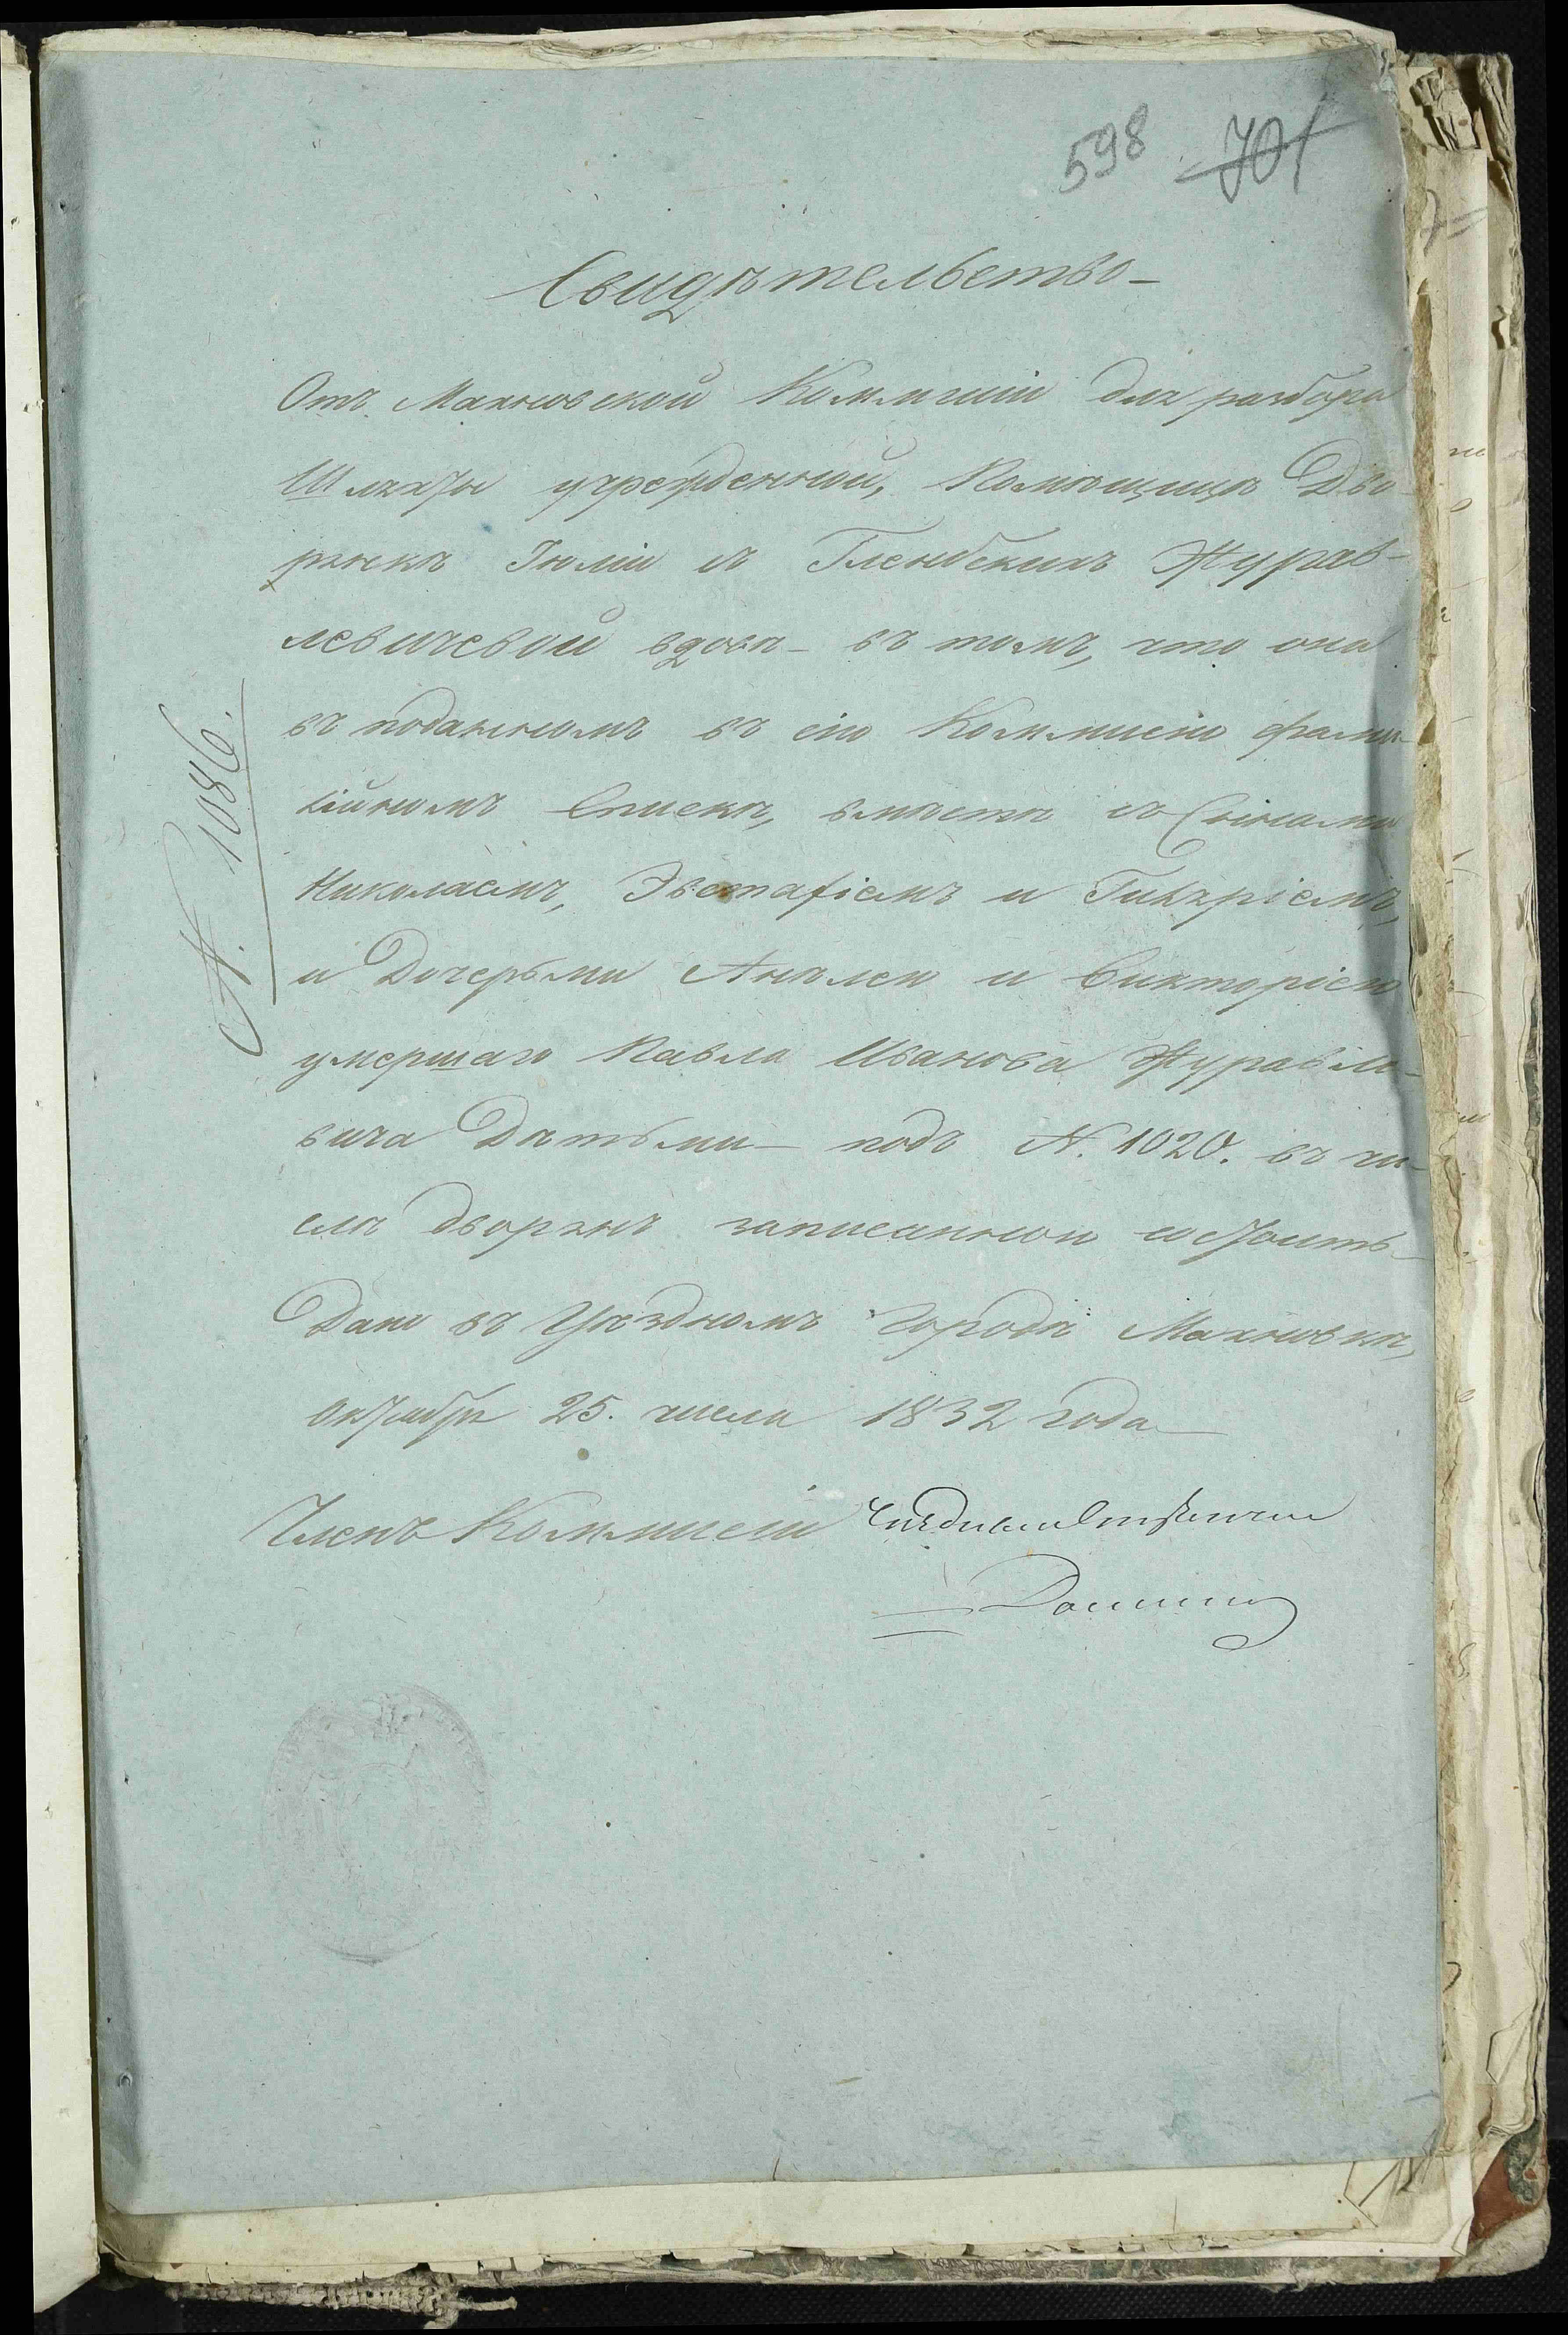 598 701
Свидѣтельство
Отъ Махновской Коммисіи для разбора
Шляхты учрежденной, Помѣщицѣ Дво-
рянкѣ Юліи съ Глембскихъ Журав-
левичевой вдовѣ – въ томъ, что она
въ поданномъ въ сію Коммисію фами-
лійномъ Спискѣ, вмѣстѣ съ Синами
Николаемъ, Эвстафіемъ и Гиляріемъ,
и Дочерьми Анѣлею и Викторіею
умершаго Павла Иванова Журавле-
вича Дѣтьми – подъ N. 1020. въ чи-
слѣ дворянъ записанною состоитъ –
Дано въ Уѣздномъ Городѣ Махновкѣ,
Октября 25. числа 1832 года
Членъ Коммисіи
N. 1086.